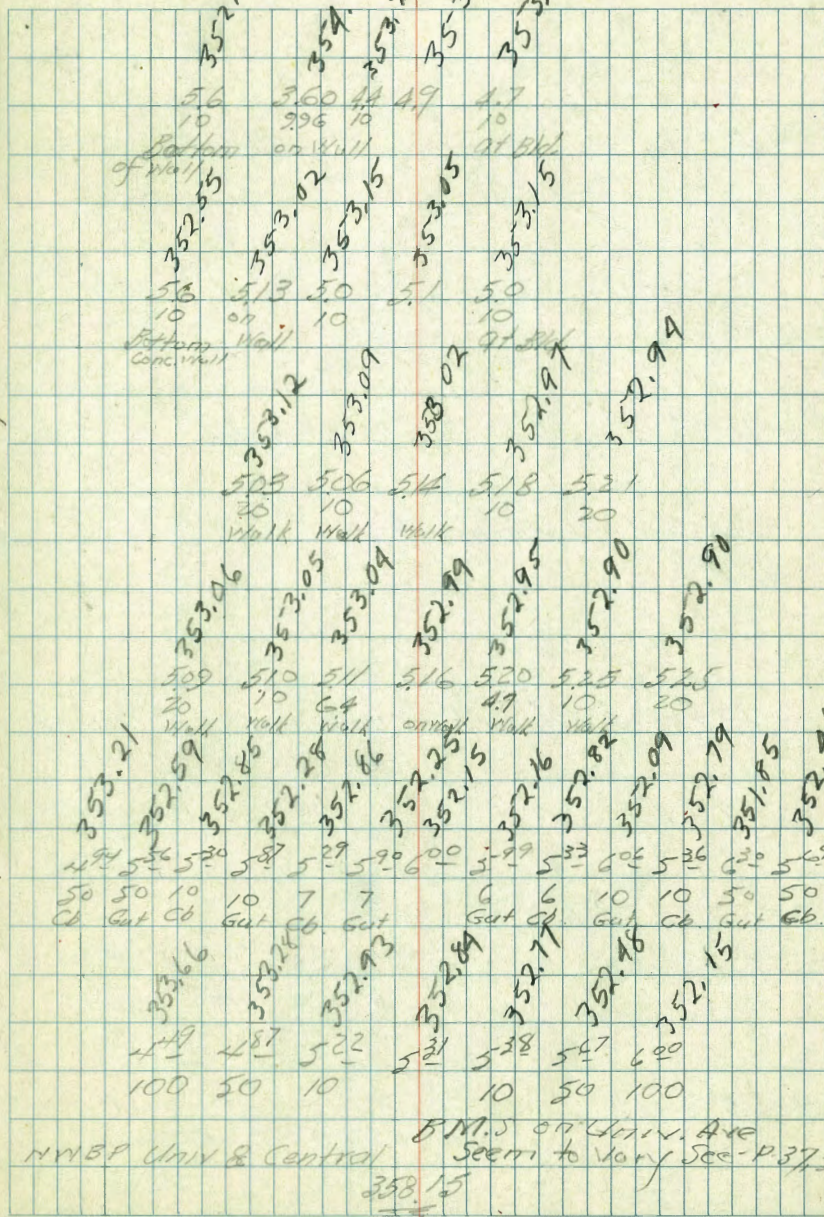 5.6 3.60 4.4 4.9 4.7
10 9.96 10 10
Bottom on Wall at Bld.
of Wall
352.55 353.02 353.15 353.05 353.15
5.6 5.13 5.0 5.1 5.0
10 on 10 10
Bottom Wall at Bld
Conc. Wall
353.12 353.09 353 02 352.97 352.94
5.03 5.06 5.14 5.18 5.21
20 10 10 20
Walk Walk Walk
353.06 353.05 353.04 352.99 352.95 352.90 352.90
5.09 5.10 5.11 5.16 5.20 5.25 5.25
20 10 6.4 4.9 10 20
Walk Walk Walk on walk Walk Walk
353.21 352.59 352.85 352.28 352.86 352.25 352.15 352.16 352.82 352.09 352.79 351.85
4.94 5.56 5.30 5.87 5.29 5.90 6.00 5.99 5.33 6.06 5.36 6.30
50 50 10 10 7 7 6 6 10 10 50 50
Cb Gut Cb Gut Cb. Gut Gut Cb. Gut Cb Gut Cb.
353.66 353.28 352.93 352.84 352.77 352.48 352.15
4.49 4.87 5.22 5.31 5.38 5.67 6.00
100 50 10 10 50 100
B.M.S on Univ. Ave
NWBP Univ & Central Seem to Vary See P. 37
358.15